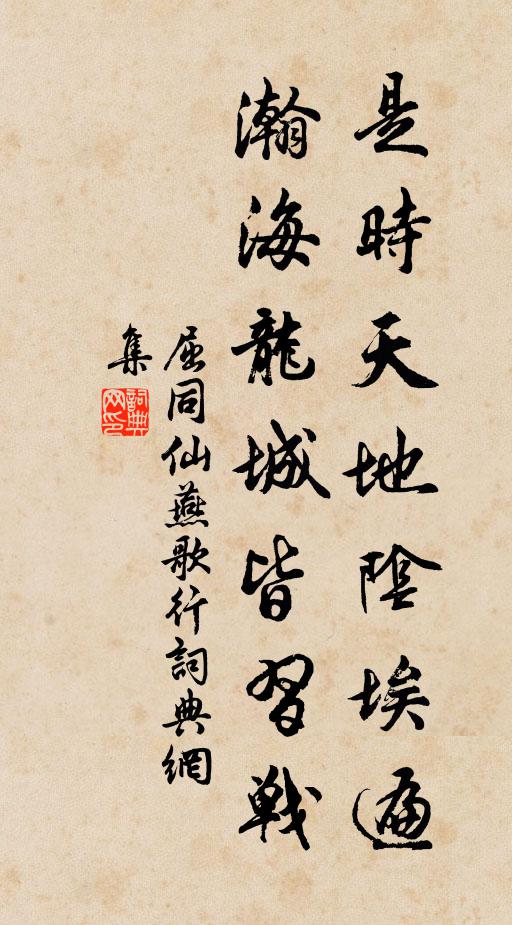 是時天地陰埃遍
瀚海龍城皆習戰
屈同仙燕歌行詞典網
集
詞典
网印